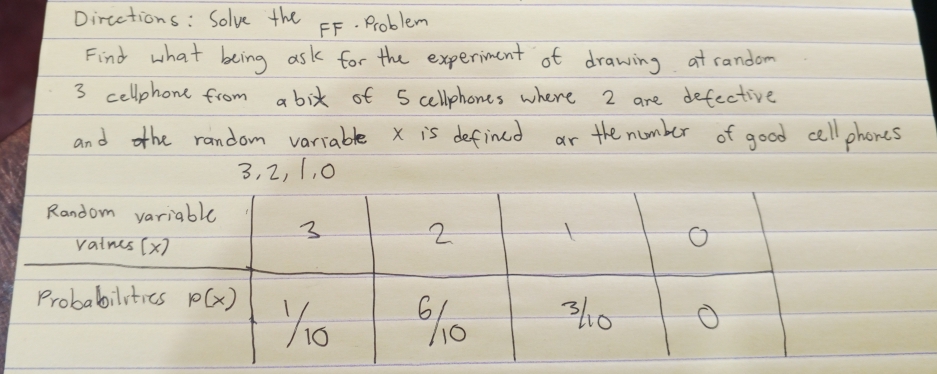 Directions: Solve the FF. Problem
Find what being ask for the experiment of drawing at random
3 cellphone from a bix of 5 cellphones where 2 are defective
and the random variable x is defined ar the number of good cell phones
3, 2, 1, 0
Random variable values (x) 3 2 1 0
Probabilities p(x) 1/10 6/10 3/10 0